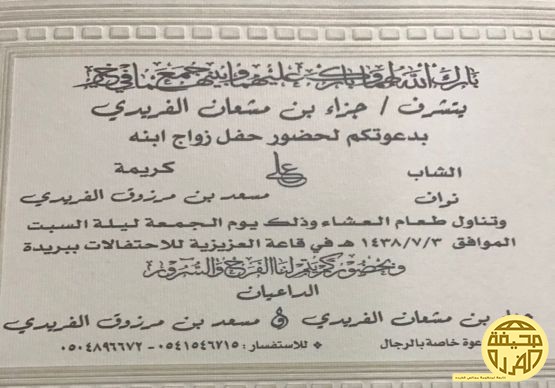 بارك الله لهما وبارك عليهما وجمع بينهما في خير
يتشرف / جزاء بن مشعان الفريدي
بدعوتكم لحضور حفل زواج ابنه
الشاب على كريمة
نواف مسعد بن مرزوق الفريدي
وتناول طعام العشاء وذلك يوم الجمعة ليلة السبت
الموافق ١٤٣٨/٧/٣ هـ في قاعة العزيزية للاحتفالات ببريدة
وبحضوركم يتم لنا الفرح والسرور
الداعيان
بن مشعان الفريدي و مسعد بن مرزوق الفريدي
دعوة خاصة بالرجال * للاستفسار : ٠٥٤١٥٤٦٧١٥ - ٠٥٠٤٨٩٦٦٧٢
صحيفة